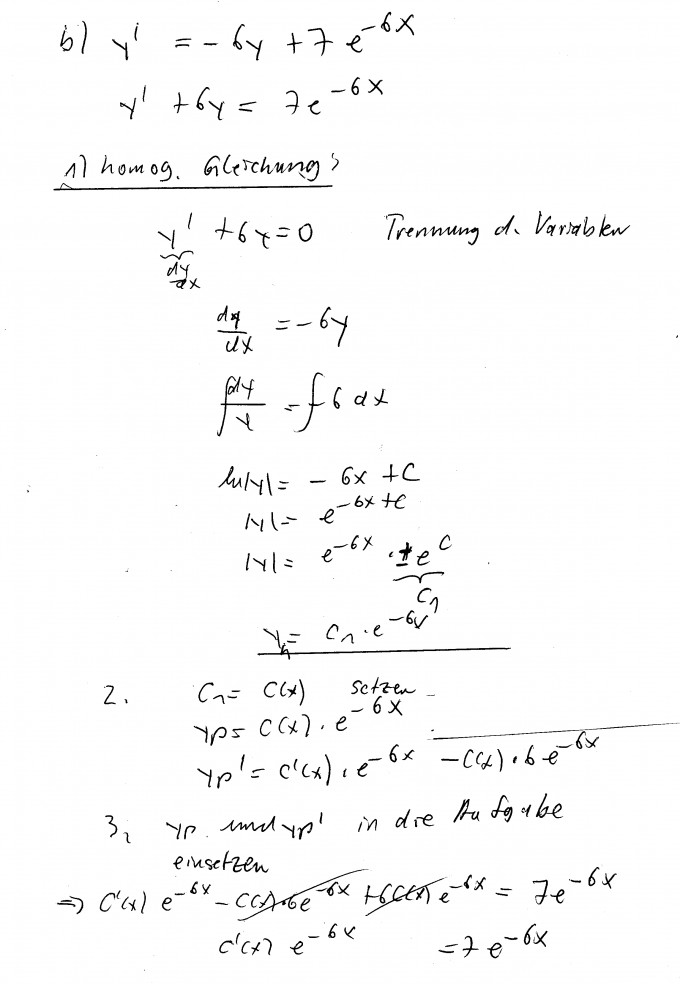 b) y' = - 6y + 7 e^{-6x}
y' + 6y = 7e^{-6x}
1) homog. Gleichung:
y' + 6y = 0 Trennung d. Variablen
dy/dx
dy/dx = - 6y
∫ dy/y = ∫ -6 dx
ln|y| = - 6x + C
|y| = e^{-6x + C}
|y| = e^{-6x} · ± e^C
C_1
y_h = C_1 · e^{-6x}
2. C_1 = C(x) setzen
yp = C(x) · e^{-6x}
yp' = C'(x) · e^{-6x} - C(x) · 6 e^{-6x}
3. yp und yp' in die Aufgabe
einsetzen
=> C'(x) e^{-6x} - C(x) · 6e^{-6x} + 6C(x) e^{-6x} = 7e^{-6x}
C'(x) e^{-6x} = 7 e^{-6x}